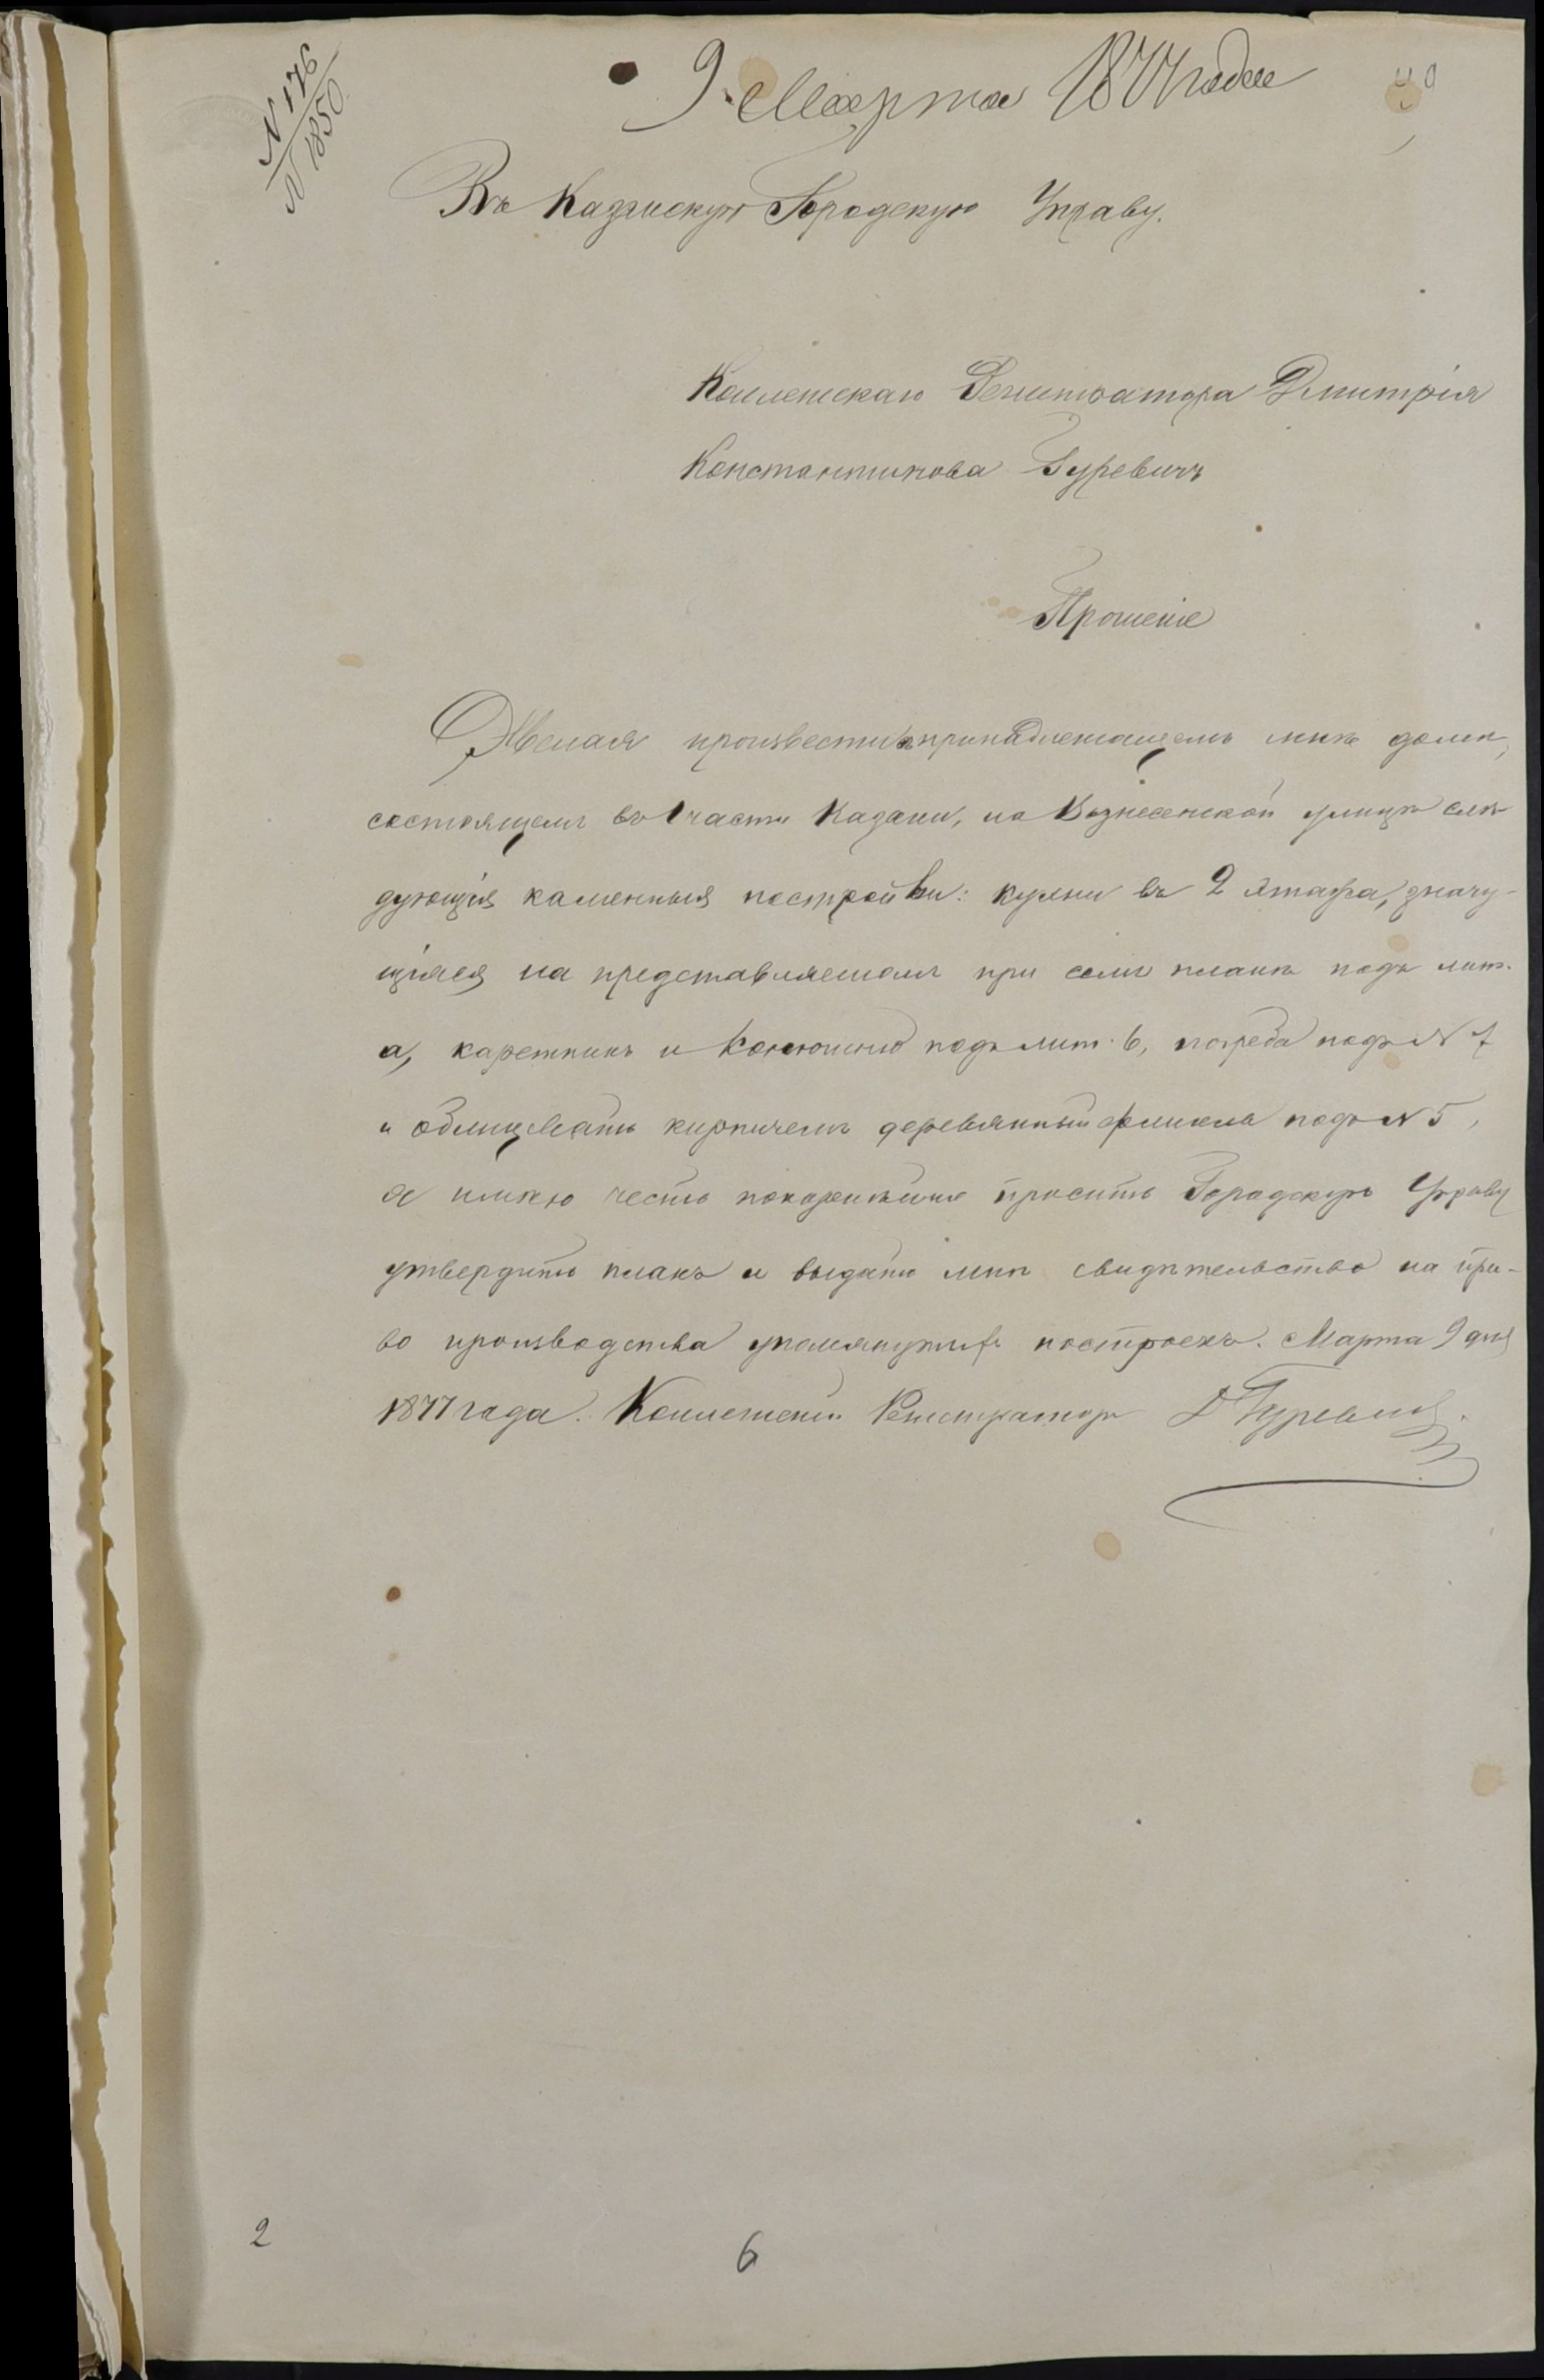 N 176
N 1850
9. Марта 1877 года
40
Въ Казанскую Городскую Управу.
Коллежскаго Регистратора Дмитрія
Константинова Гуревичъ
Прошеніе
Желая произвести въ принадлежащемъ мнѣ домѣ,
состоящемъ въ 1 части Казани, на Вознесенской улицѣ слѣ-
дующія каменныя постройки: кухни въ 2 этажа, значу-
щіяся на представляемомъ при семъ планѣ подъ лит.
а, каретникъ и конюшню подъ лит. б, погреба подъ N 7
и облицевать кирпичемъ деревянный флигель подъ N 5,
я имѣю честь покорнѣйше просить Городскую Управу
утвердить планъ и выдать мнѣ свидѣтельство на пра-
во производства упомянутыхъ построекъ. Марта 9 дня
1877 года. Коллежскій Регистраторъ Д Гуревичъ.
2
6